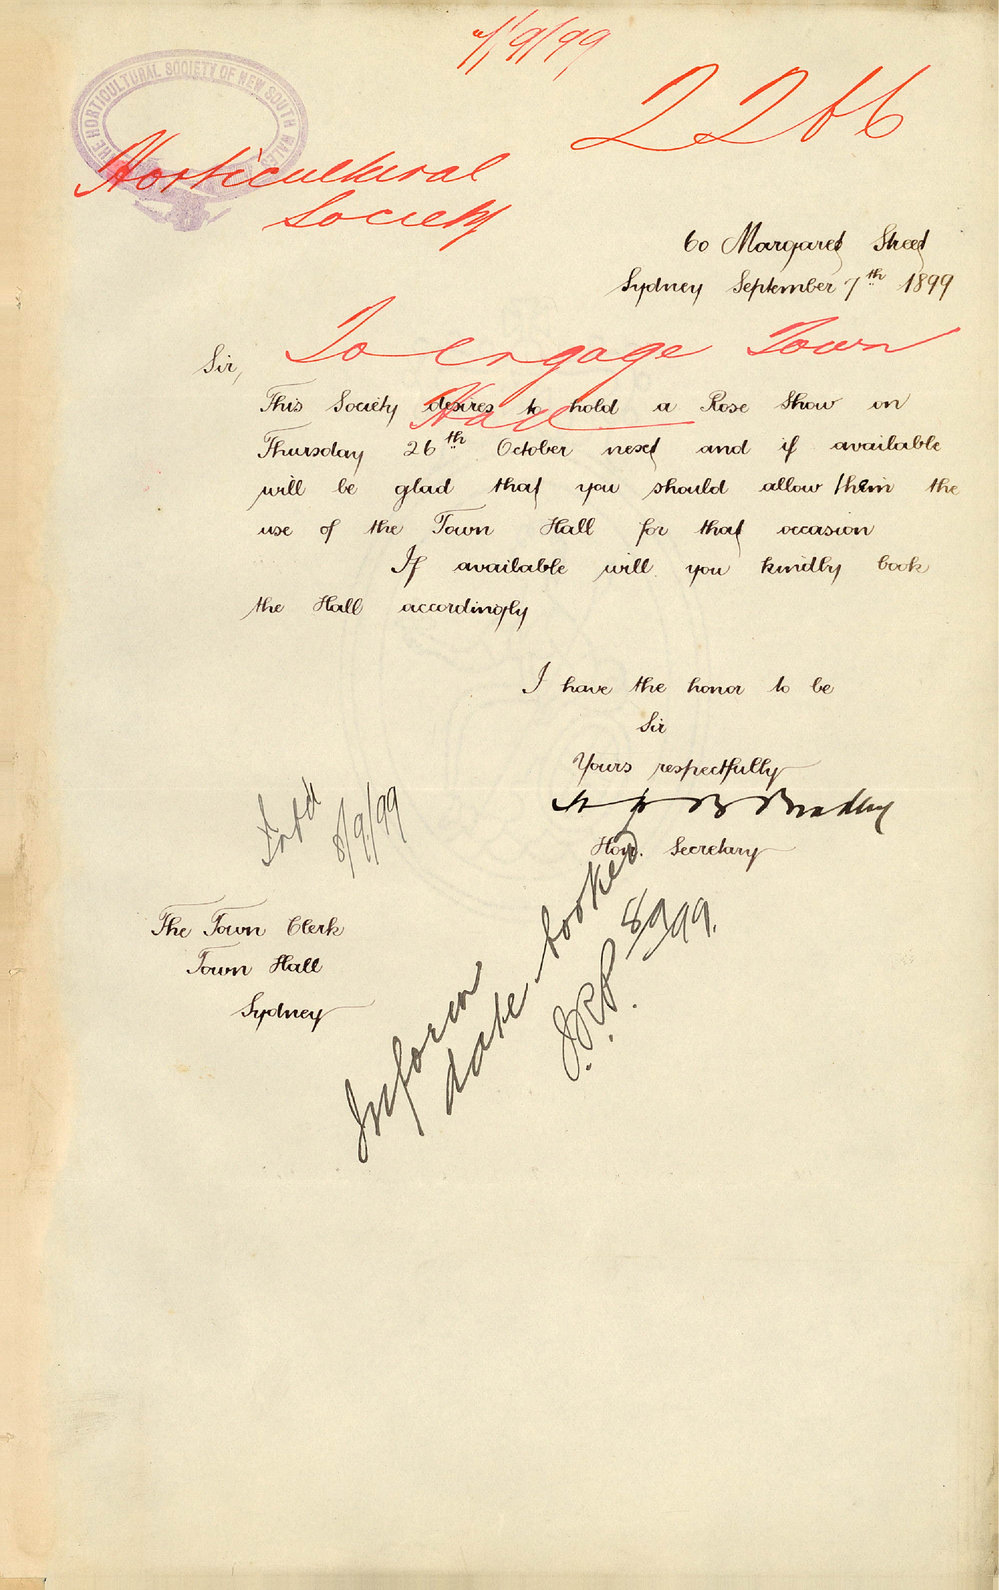 /9/99
2266
THE HORTICULTURAL SOCIETY OF NEW SOUTH WALES
Horticultural
Society
60 Margaret Street
Sydney September 7th 1899
To engage Town
Hall
Sir,
This Society desires to hold a Rose Show on
Thursday 26th October next and if available
will be glad that you should allow them the
use of the Town Hall for that occasion
If available will you kindly book
the Hall accordingly
I have the honor to be
Sir
Yours respectfully
H J B Bradley
Hon. Secretary
8/9/99
The Town Clerk
Town Hall
Sydney
Inform
date booked
J.R.P. 8/9/99.